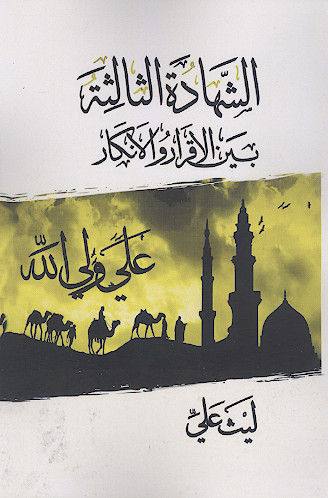 الشهادة الثالثة
بين الاقرار والانكار
علي ولي الله
ليث علي